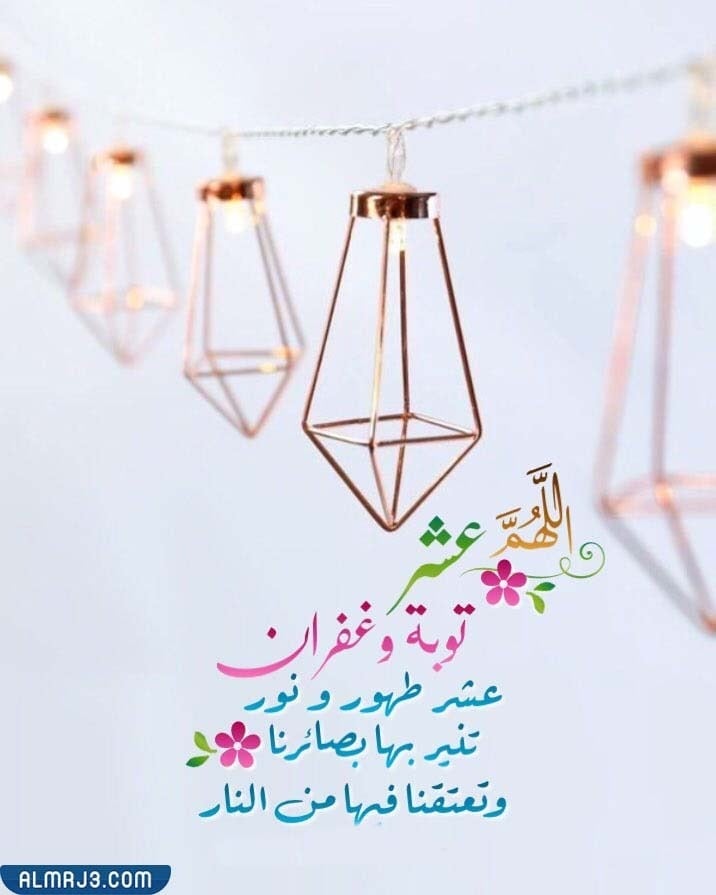 اللَّهُمَّ عشر
توبة وغفران
عشر طهور ونور
تنير بها بصائرنا
وتعتقنا فيها من النار
ALMRJ3.COM